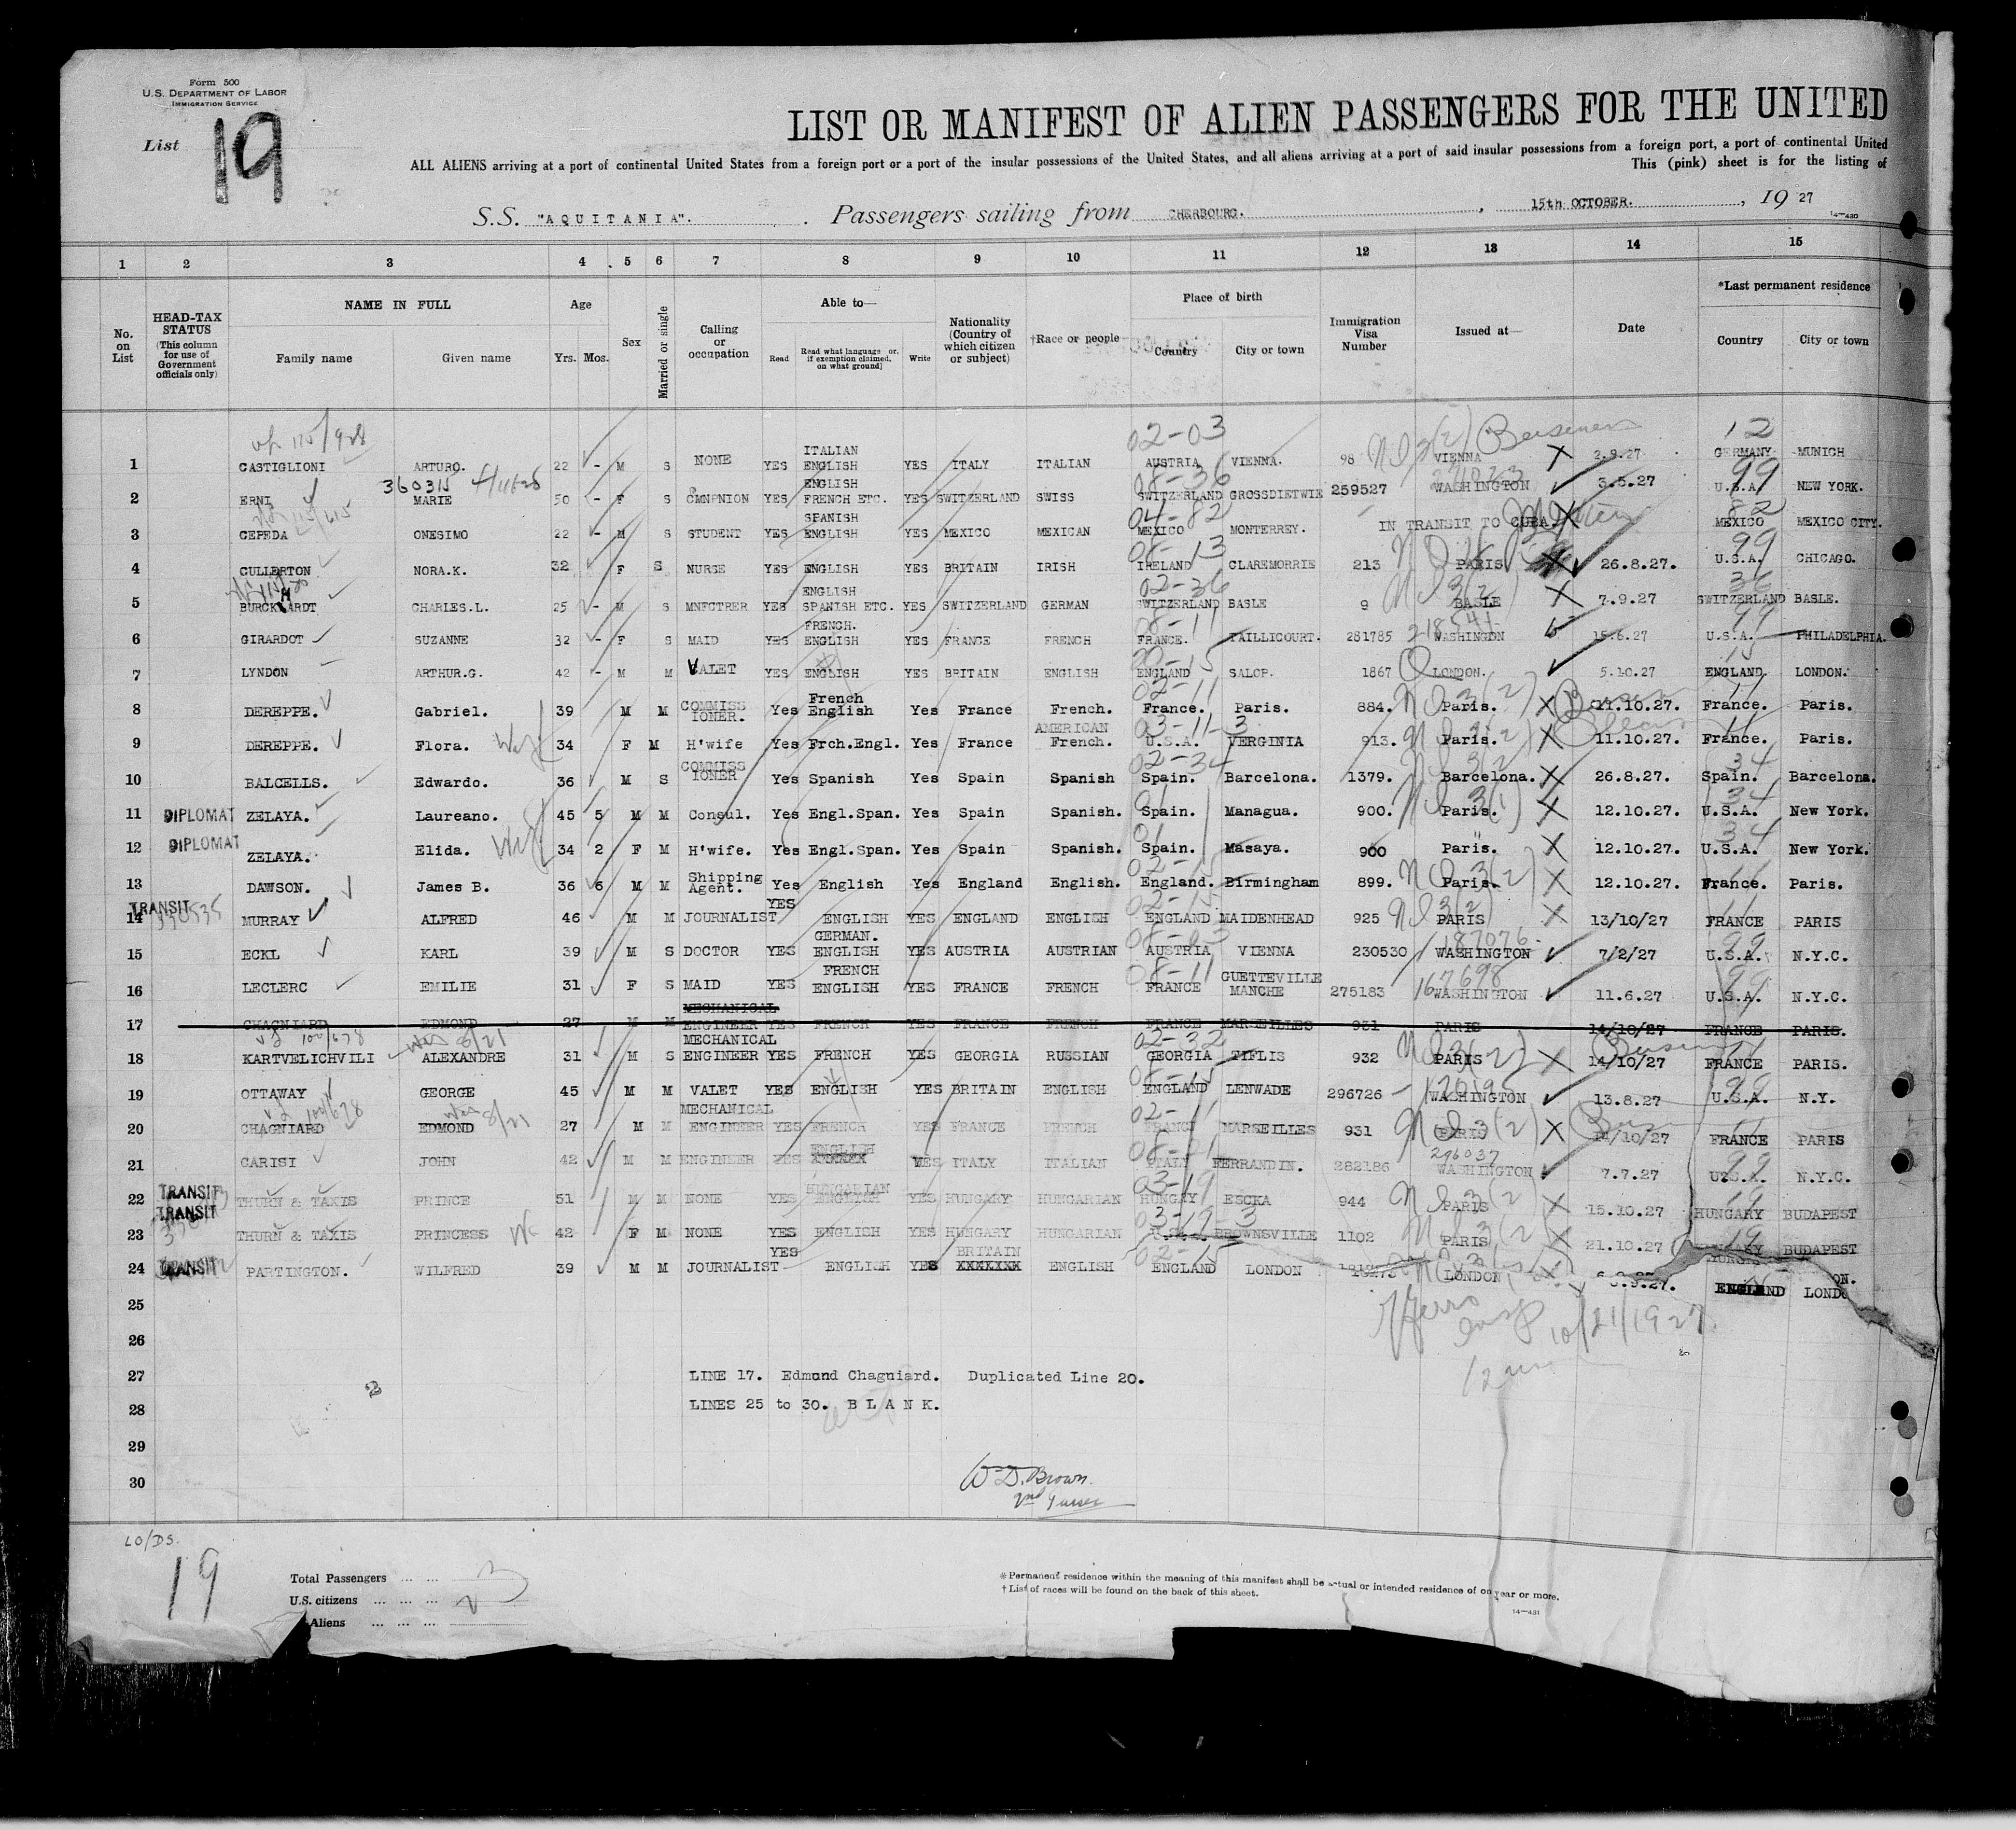 Form 500
U.S. DEPARTMENT OF LABOR
IMMIGRATION SERVICE
List 19
LIST OR MANIFEST OF ALIEN PASSENGERS FOR THE UNITED
ALL ALIENS arriving at a port of continental United States from a foreign port or a port of the insular possessions of the United States, and all aliens arriving at a port of said insular possessions from a foreign port, a port of continental United
This (pink) sheet is for the listing of
S.S. "AQUITANIA". Passengers sailing from CHERBOURG. , 15th OCTOBER. , 19 27
14—430
1 2 3 4 5 6 7 8 9 10 11 12 13 14 15
No. on List HEAD-TAX STATUS (This column for use of Government officials only) NAME IN FULL Family name Given name Age Yrs. Mos. Sex Married or single Calling or occupation Able to— Read Read what language or, if exemption claimed, on what ground Write Nationality (Country of which citizen or subject) †Race or people Place of birth Country City or town Immigration Visa Number Issued at— Date *Last permanent residence Country City or town
1 CASTIGLIONI ARTURO. 22 - M S NONE YES ITALIAN ENGLISH YES ITALY ITALIAN 02-03 AUSTRIA VIENNA. 98 VIENNA X 2.9.27 12 GERMANY MUNICH
360315
2 ERNI MARIE 50 - F S CMNPNION YES ENGLISH FRENCH ETC. YES SWITZERLAND SWISS 08-36 SWITZERLAND GROSSDIETWIE 259527 WASHINGTON 3.5.27 99 U.S.A. NEW YORK.
3 CEPEDA ONESIMO 22 - M S STUDENT YES SPANISH ENGLISH YES MEXICO MEXICAN 04-82 MEXICO MONTERREY. IN TRANSIT TO CUBA. 82 MEXICO MEXICO CITY.
4 CULLERTON NORA.K. 32 F S NURSE YES ENGLISH YES BRITAIN IRISH 08-13 IRELAND CLAREMORRIE 213 PARIS 26.8.27. 99 U.S.A. CHICAGO.
5 BURCKHARDT CHARLES.L. 25 - M S MNFCTRER YES ENGLISH SPANISH ETC. YES SWITZERLAND GERMAN 02-36 SWITZERLAND BASLE 9 BASLE X 7.9.27 36 SWITZERLAND BASLE.
6 GIRARDOT SUZANNE 32 - F S MAID YES FRENCH. ENGLISH YES FRANCE FRENCH 08-11 FRANCE. PAILLICOURT. 281785 218541 WASHINGDON 15.6.27 99 U.S.A. PHILADELPHIA.
7 LYNDON ARTHUR.G. 42 - M M VALET YES ENGLISH YES BRITAIN ENGLISH ENGLAND SALOP. 1867 LONDON. 5.10.27 15 ENGLAND. LONDON.
8 DEREPPE. Gabriel. 39 M M COMMISS IONER. Yes French English Yes France French. 02-11 France. Paris. 884. Paris. X 11.10.27. 11 France. Paris.
9 DEREPPE. Flora. 34 F M H'wife Yes Frch.Engl. Yes France AMERICAN French. 03-11-3 U.S.A. VERGINIA 913. Paris. X 11.10.27. 11 France. Paris.
10 BALCELLS. Edwardo. 36 M S COMMISS IONER Yes Spanish Yes Spain Spanish 02-34 Spain. Barcelona. 1379. Barcelona. X 26.8.27. 34 Spain. Barcelona.
11 DIPLOMAT ZELAYA. Laureano. 45 5 M M Consul. Yes Engl.Span. Yes Spain Spanish. Spain. Managua. 900. Paris. X 12.10.27. 34 U.S.A. New York.
12 DIPLOMAT ZELAYA. Elida. 34 2 F M H'wife. Yes Engl.Span. Yes Spain Spanish. Spain. Masaya. 900 Paris. X 12.10.27. 34 U.S.A. New York.
13 DAWSON. James B. 36 6 M M Shipping Agent. Yes English Yes England English. 02-15 England. Birmingham 899. Paris. X 12.10.27. 11 France. Paris.
14 TRANSIT MURRAY ALFRED 46 M M JOURNALIST YES ENGLISH YES ENGLAND ENGLISH 02-15 ENGLAND MAIDENHEAD 925 PARIS X 13/10/27 11 FRANCE PARIS
15 ECKL KARL 39 M S DOCTOR YES GERMAN. ENGLISH YES AUSTRIA AUSTRIAN 08-03 AUSTRIA VIENNA 230530 187076 WASHINGTON 7/2/27 99 U.S.A. N.Y.C.
16 LECLERC EMILIE 31 F S MAID YES FRENCH ENGLISH YES FRANCE FRENCH 08-11 FRANCE GUETTEVILLE MANCHE 275183 167698 WASHINGTON 11.6.27 99 U.S.A. N.Y.C.
17 CHAGNIARD EDMOND 27 M M MECHANICAL ENGINEER YES FRENCH YES FRANCE FRENCH FRANCE MARSEILLES 931 PARIS 14/10/27 FRANCE PARIS.
18 KARTVELICHVILI ALEXANDRE 31 M S MECHANICAL ENGINEER YES FRENCH YES GEORGIA RUSSIAN 02-32 GEORGIA TIFLIS 932 PARIS X 14/10/27 11 FRANCE PARIS.
19 OTTAWAY GEORGE 45 M M VALET YES ENGLISH YES BRITAIN ENGLISH 08-15 ENGLAND LENWADE 296726 WASHINGTON 13.8.27 99 U.S.A. N.Y.
20 CHAGNIARD EDMOND 27 M M MECHANICAL ENGINEER YES FRENCH YES FRANCE FRENCH 02-11 FRANCE MARSEILLES 931 PARIS X 14/10/27 11 FRANCE PARIS
21 CARISI JOHN 42 M M ENGINEER YES ENGLISH XXXXXX YES ITALY ITALIAN 08-21 ITALY FERRANDIN. 282186 296037 WASHINGTON 7.7.27 99 U.S.A. N.Y.C.
22 TRANSIT THURN & TAXIS PRINCE 51 M M NONE YES HUNGARIAN ENGLISH YES HUNGARY HUNGARIAN 03-19 HUNGAY ESCKA 944 PARIS X 15.10.27 19 HUNGARY BUDAPEST
23 TRANSIT THURN & TAXIS PRINCESS 42 F M NONE YES ENGLISH YES HUNGARY HUNGARIAN 03-19-3 U.S.A. BROWNSVILLE 1102 PARIS X 21.10.27 19 BUDAPEST
24 TRANSIT PARTINGTON. WILFRED 39 M M JOURNALIST YES ENGLISH YES BRITAIN XXXXIXX ENGLISH 02-15 ENGLAND LONDON LONDON X ENGLAND
25
26
27 LINE 17. Edmund Chagniard. Duplicated Line 20.
28 LINES 25 to 30. B L A N K.
29
30
10/21/1927.
2
W D. Brown.
2nd Purser
LO/DS.
19
Total Passengers ... ...
U.S. citizens ... ... ...
Aliens ... ... ...
* Permanent residence within the meaning of this manifest shall be actual or intended residence of one year or more.
† List of races will be found on the back of this sheet.
14—431